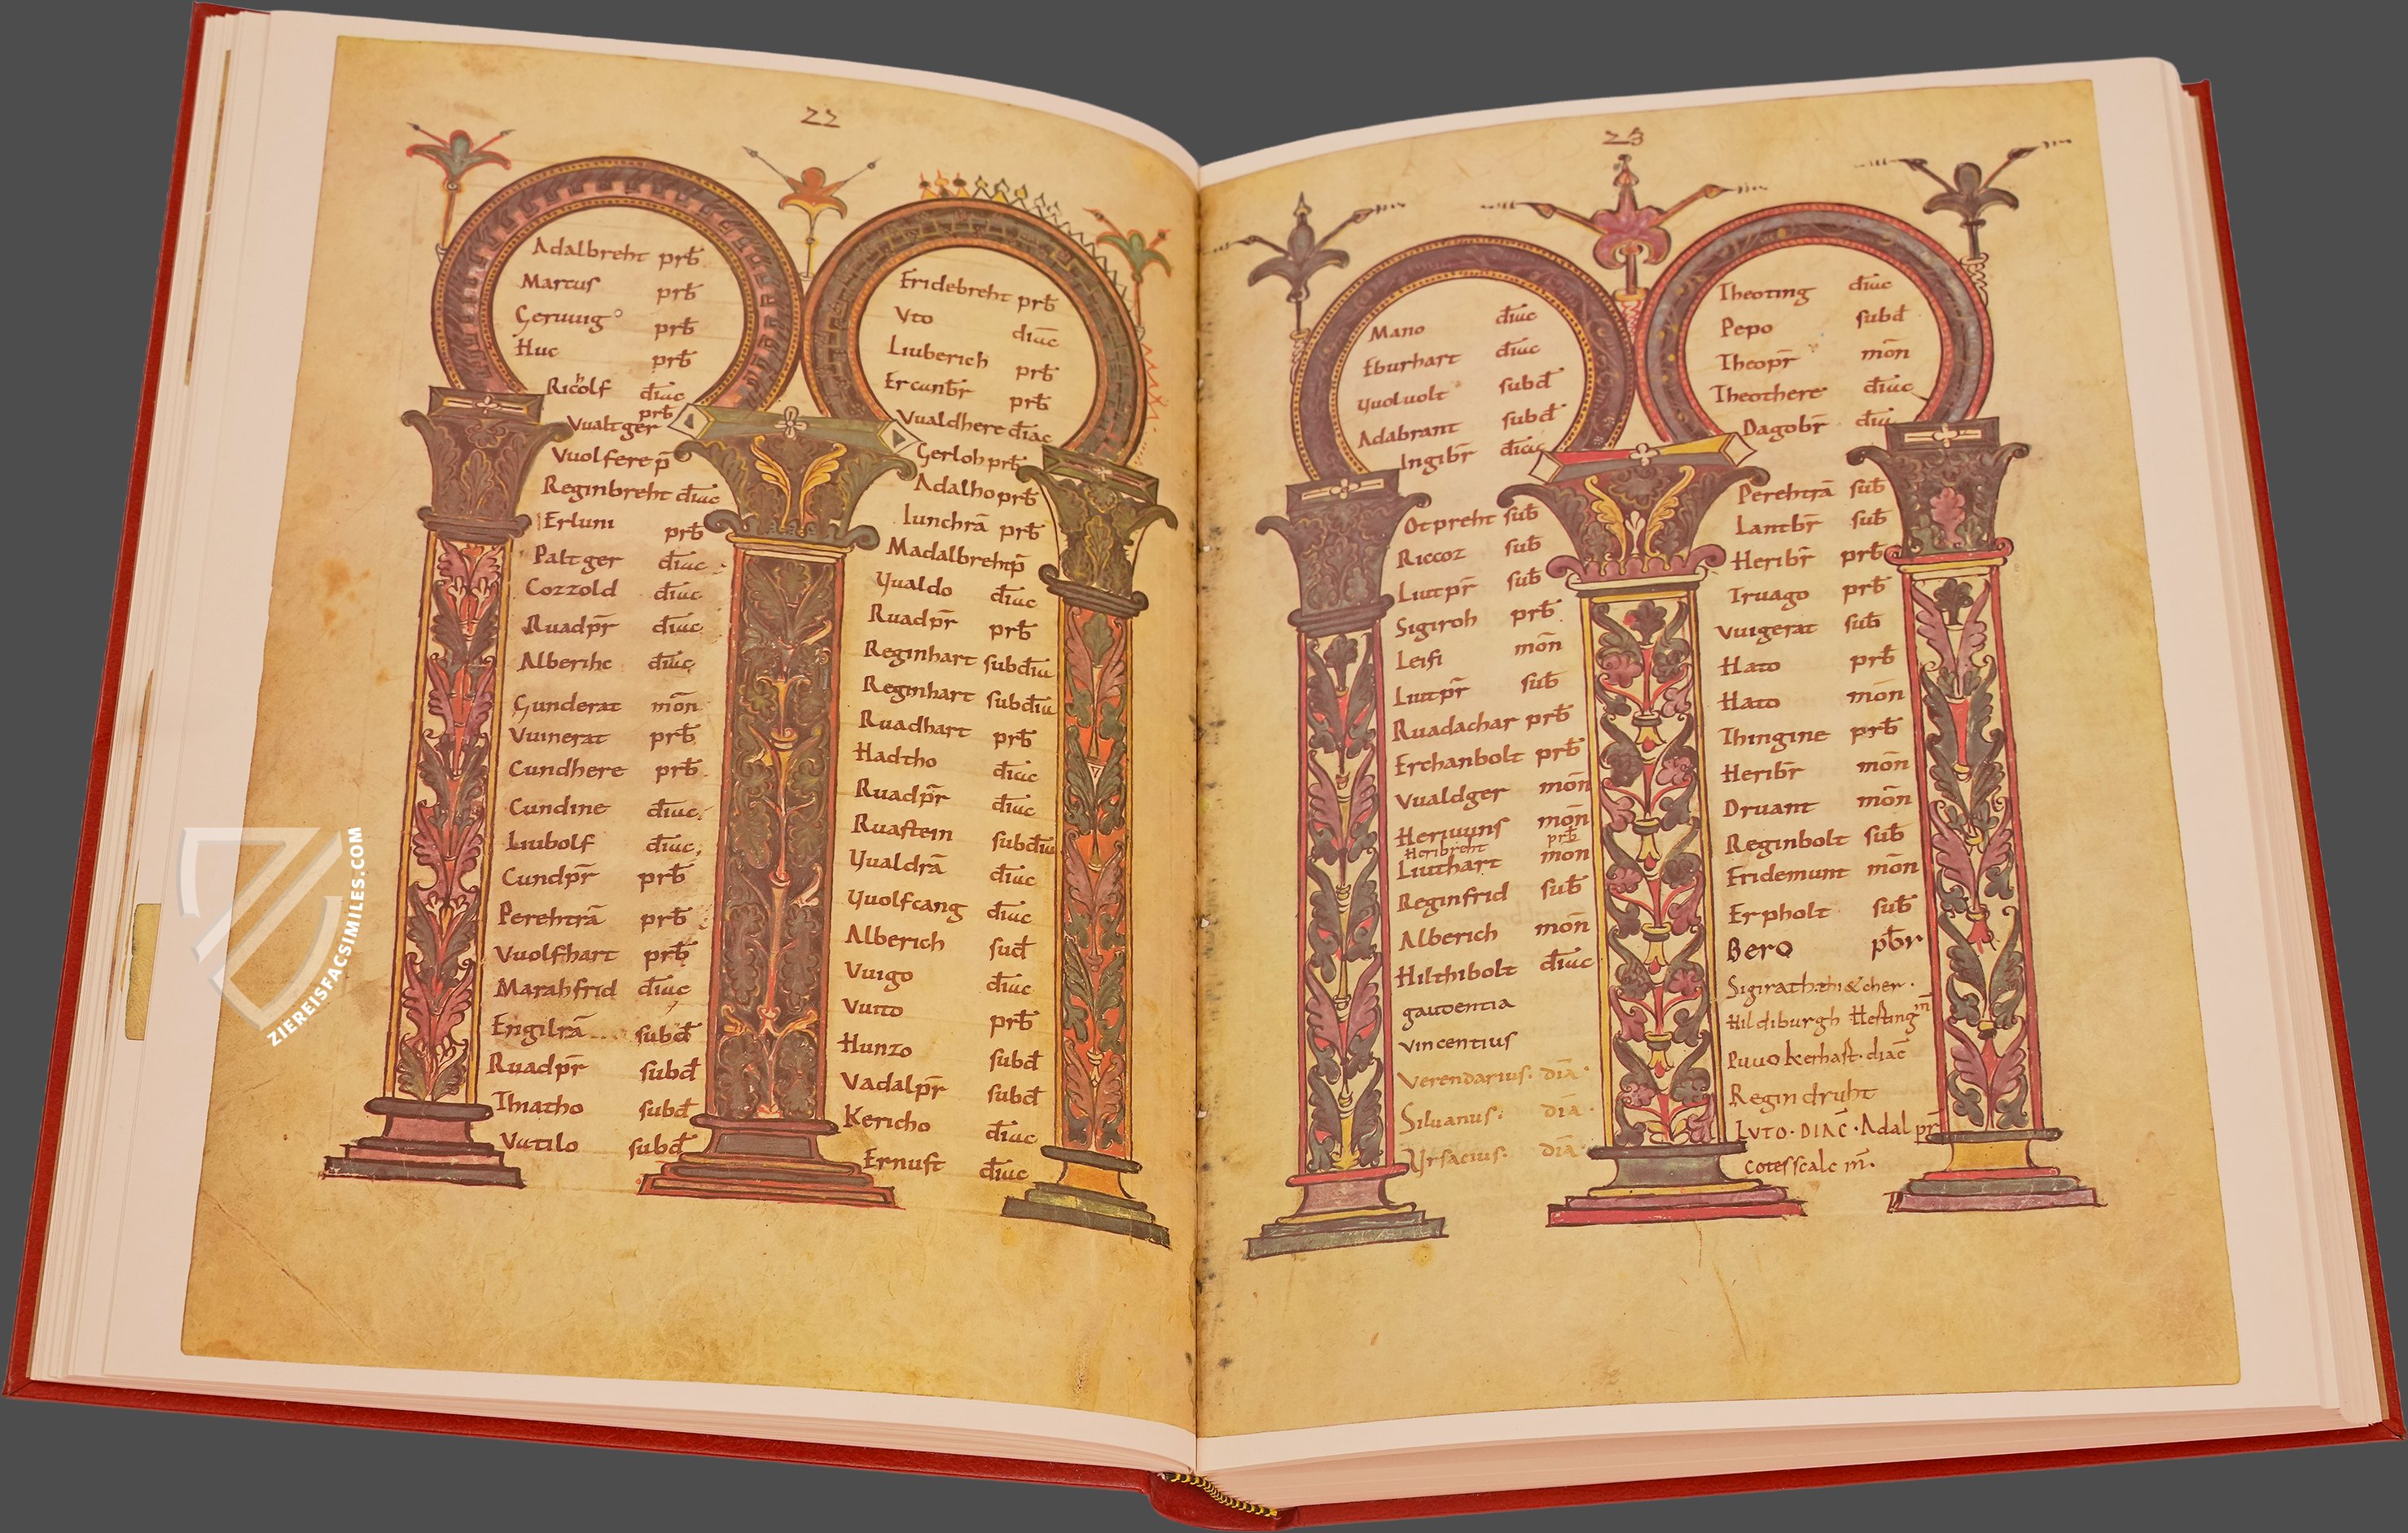 22
Adalbreht prƀ
Marcus prƀ
Geruuig prƀ
Huc prƀ
Ricolf diac
prƀ
Vualtger
Vuolfere p̄
Reginbreht diac
Erluni prƀ
Paltger diac
Cozzold diac
Ruadpr̄ diac
Alberihc diac
Gunderat mōn
Vuinerat prƀ
Cundhere prƀ
Cundine diac
Liubolf diac
Cundpr̄ prƀ
Perehtrā prƀ
Vuolfhart prƀ
Marahfrid diac
Engilrā subđ
Ruadpr̄ subđ
Thiatho subđ
Vutilo subđ
Fridebreht prƀ
Vto diac
Liuberich prƀ
Ercunƀr prƀ
Vualdhere diac
Gerloh prƀ
Adalho prƀ
Iunchrā prƀ
Madalbreht p̄
Vualdo diac
Ruadpr̄ prƀ
Reginhart subdiac
Reginhart subdiac
Ruadhart prƀ
Hadtho diac
Ruadpr̄ diac
Ruastein subdiac
Vualdrā diac
Vuolfcang diac
Alberich suđ
Vuigo diac
Vuito prƀ
Hunzo subđ
Vadalpr̄ subđ
Kericho diac
Ernust diac
23
Mano diac
Eburhart diac
Vuoluolt subđ
Adabrant subđ
Ingiƀr diac
Otpreht suƀ
Riccoz suƀ
Liutpr̄ suƀ
Sigiroh prƀ
Leifi mōn
Liutpr̄ suƀ
Ruadachar prƀ
Erchanbolt prƀ
Vualdger mōn
Heriuuns mōn
Heribreht prƀ
Liuthart mōn
Reginfrid suƀ
Alberich mōn
Hilthibolt diac
gaudentia
vincentius
Verendarius. diā.
Siluanus. diā.
Vrsacius. diā.
Theoting diac
Pepo subđ
Theopr̄ mōn
Theothere diac
Dagoƀr diac
Perehtrā suƀ
Lantƀr suƀ
Heriƀr prƀ
Truago prƀ
Vuigerat suƀ
Hato prƀ
Hato mōn
Thingine prƀ
Heriƀr mōn
Druant mōn
Reginbolt suƀ
Fridemunt mōn
Erpholt suƀ
Bero pƀr
Hildiburgh Hesting m̄
Puuo kerhast. diac
Regindruht
LVTO. DIAC. Adalpr̄
Cotesscalc m̄.
ZIEREISFACSIMILES.COM